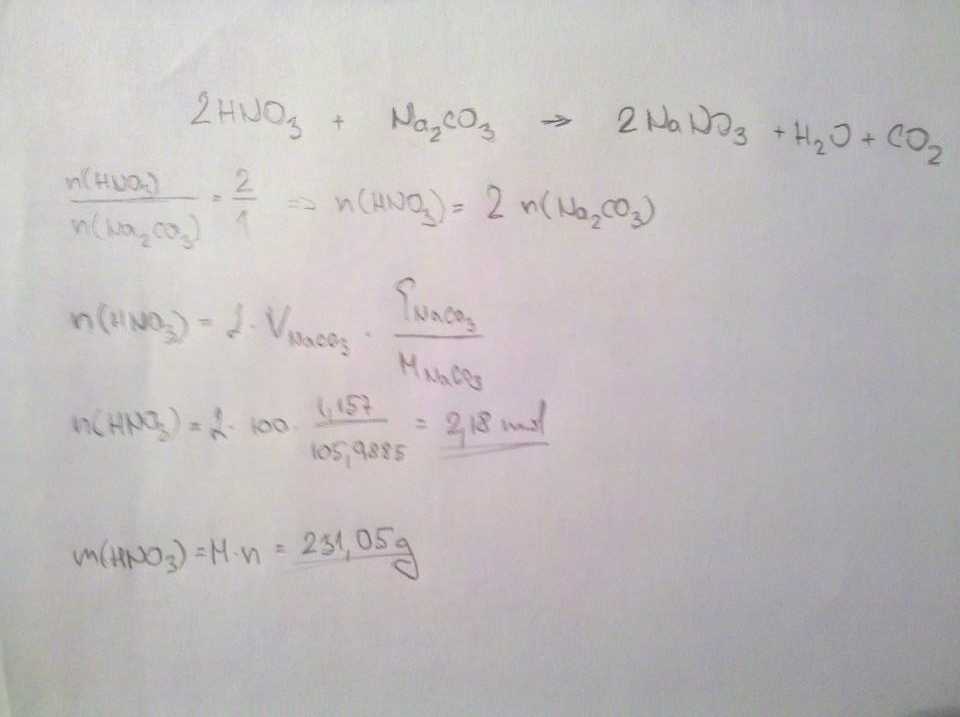 2HNO₃ + Na₂CO₃ → 2NaNO₃ + H₂O + CO₂
n(HNO₃) / n(Na₂CO₃) = 2/1 => n(HNO₃) = 2 n(Na₂CO₃)
n(HNO₃) = 2 · V NaCO₃ · ρ NaCO₃ / M NaCO₃
n(HNO₃) = 2 · 100 · 1,157 / 105,9885 = 2,18 mol
m(HNO₃) = M·n = 231,05g